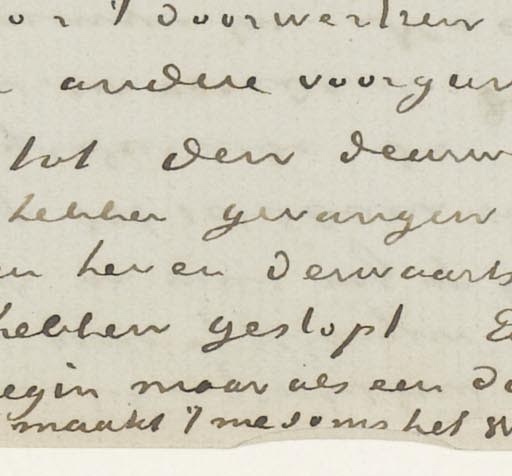 or 't doorwerken
andere voorgan
tot den deurw
hebben gevangen
en her en derwaarts
hebben gestopt E
egin maar als een do
maakt 't me soms het